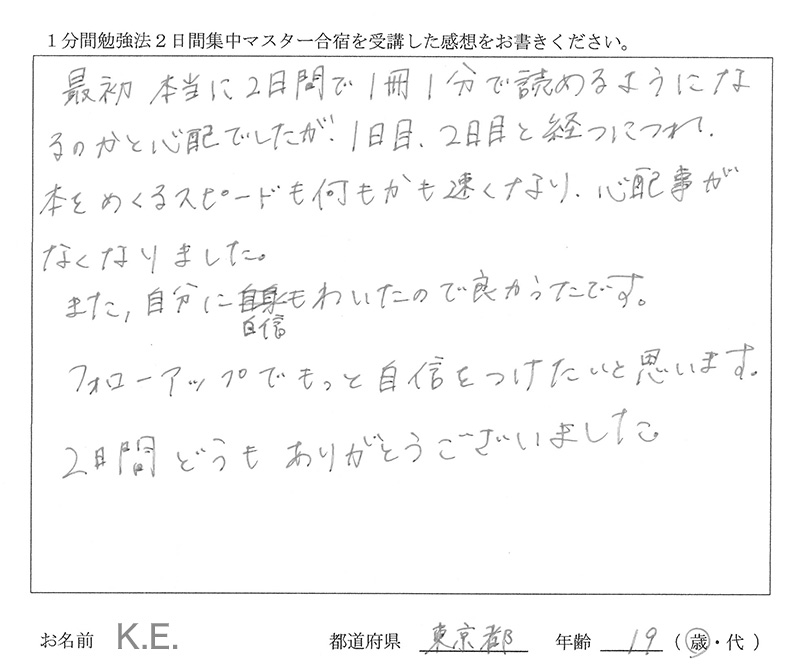 1分間勉強法2日間集中マスター合宿を受講した感想をお書きください。
最初 本当に2日間で1冊1分で読めるようにな
るのかと心配でしたが、1日目、2日目と経つにつれて、
本をめくるスピードも何もかも速くなり、心配事が
なくなりました。
また、自分に自身もわいたので良かったです。
自信
フォローアップでもっと自信をつけたいと思います。
2日間どうもありがとうございました。
お名前 K.E. 都道府県 東京都 年齢 19 (歳・代)